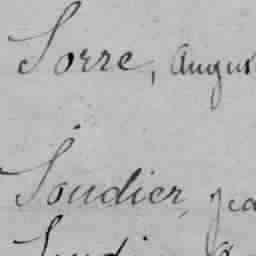 Sorre, Augus
Soudier, Jea